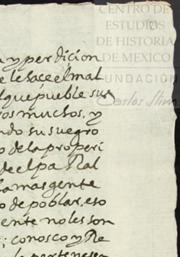 CENTRO DE
ESTUDIOS
DE HISTORIA
DE MÉXICO
FUNDACIÓN
Carlos Slim
a y perdicion
e le hace el mal
que pueble sus
os muchos, y
ndo su suegro
o de la properi
de el pa Ral
la mas gente
o de poblar, esto
ente no les son
conosco y Re